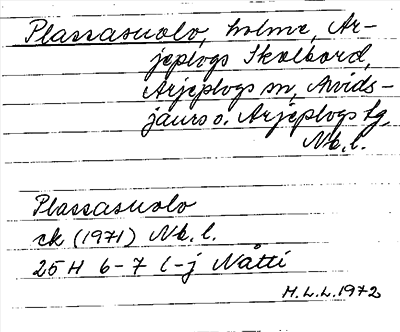 Plassasuolo, holme, Ar-
jeplogs Skolbord,
Arjeplogs sn, Arvids-
jaurs o. Arjeplogs tg,
Nb. l.
Plassasuolo
ek (1971) Nb. l.
25 H 6-7 i-j Nåtti
H.L.L. 1972